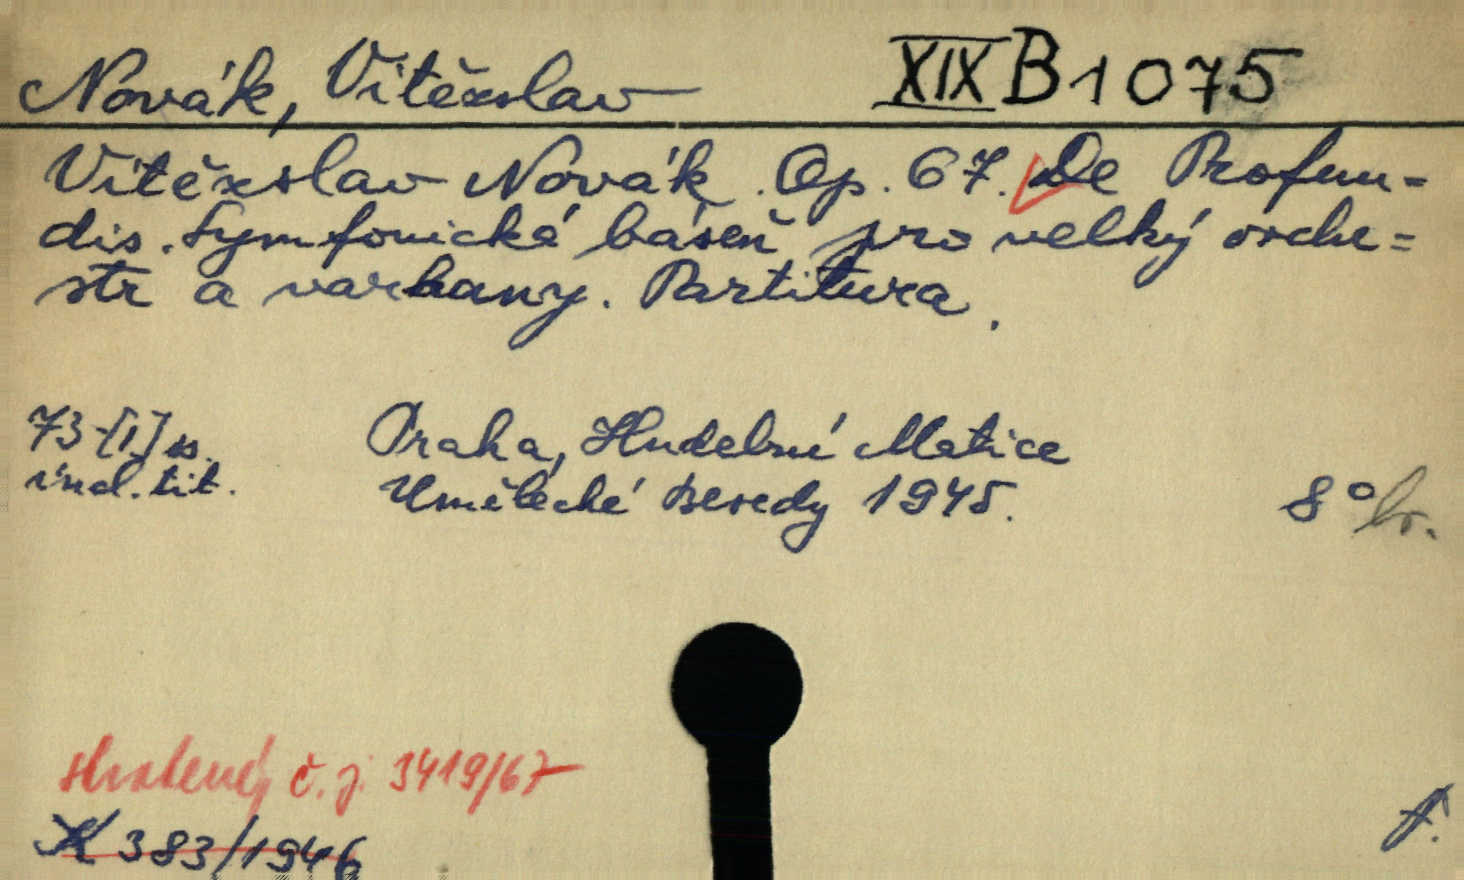 Novák, Vítězslav
XIX B 1075
Vítězslav Novák. Op. 67. De Profun-
dis. Symfonická báseň pro velký orche=
str a varhany. Partitura.
73-[1] ss.
incl. tit.
Praha, Hudební Matice
Umělecké Besedy 1945.
8° br.
ztracený č. j. 3419/67
383/1946